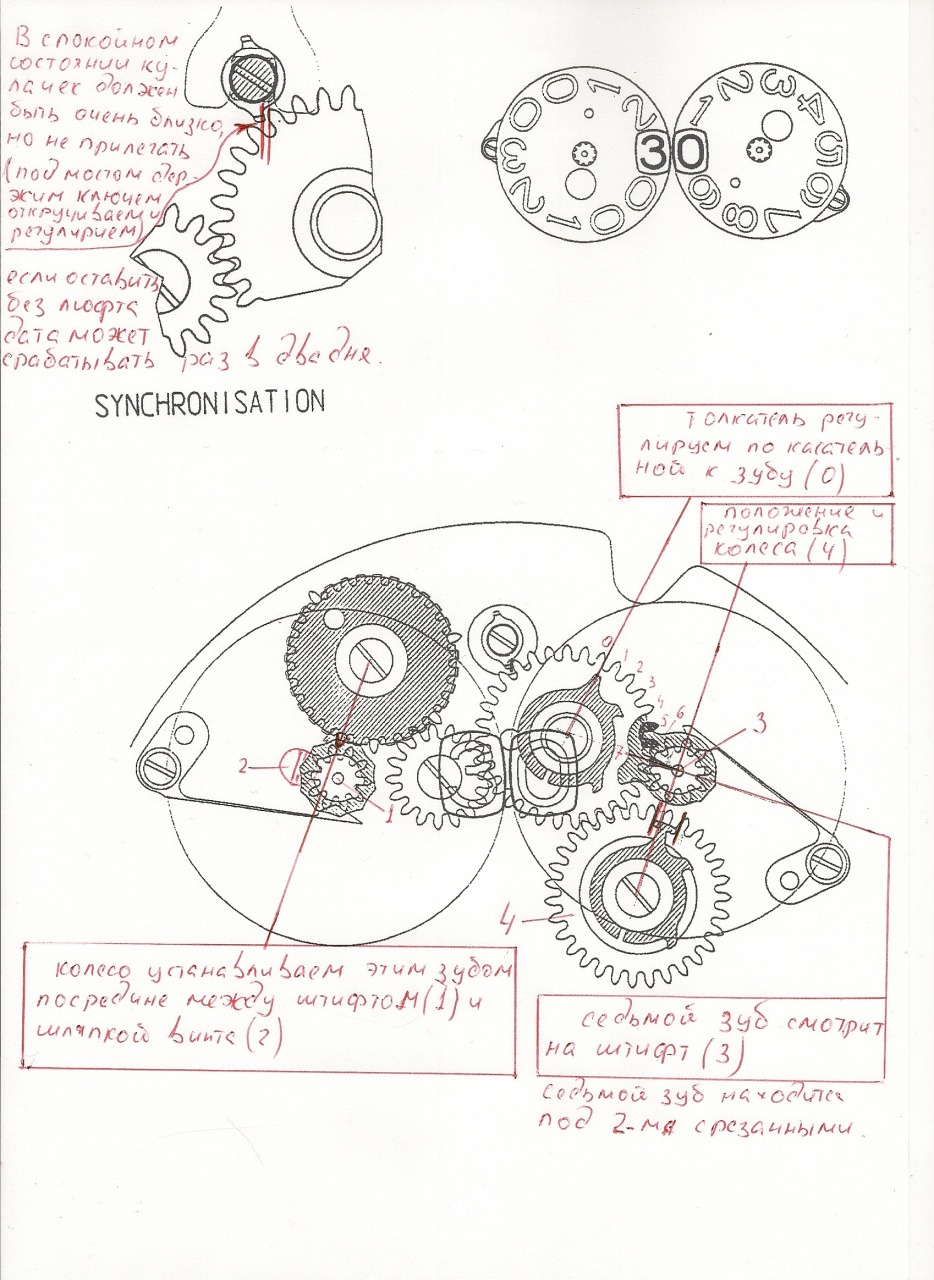 В спокойном
состоянии ку-
лачек должен
быть очень близко,
но не прилегать
(под мостом дер-
жим ключем
откручиваем и
регулирием)
если оставить
без люфта
дата может
срабатывать раз в два дня.
0 0 1 2 3 0 0 1 2 3
0 1 2 3 4 5 6 7 8 9
SYNCHRONISATION
Толкатель регу-
лируем по касатель
ной к зубу (0)
положение и
регулировка
колеса (4)
0
1
2
3
4
5
6
7
3
2
1
4
колесо устанавливаем этим зубом
посредине между штифтом (1) и
шляпкой винта (2)
седьмой зуб смотрит
на штифт (3)
седьмой зуб находится
под 2-мя срезанными.